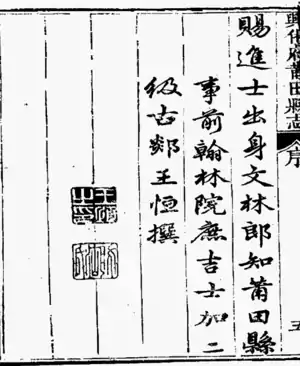 興化府莆田縣志
序
五
賜進士出身文林郎知莆田縣
事前翰林院庶吉士加二
級古鄒王恒撰